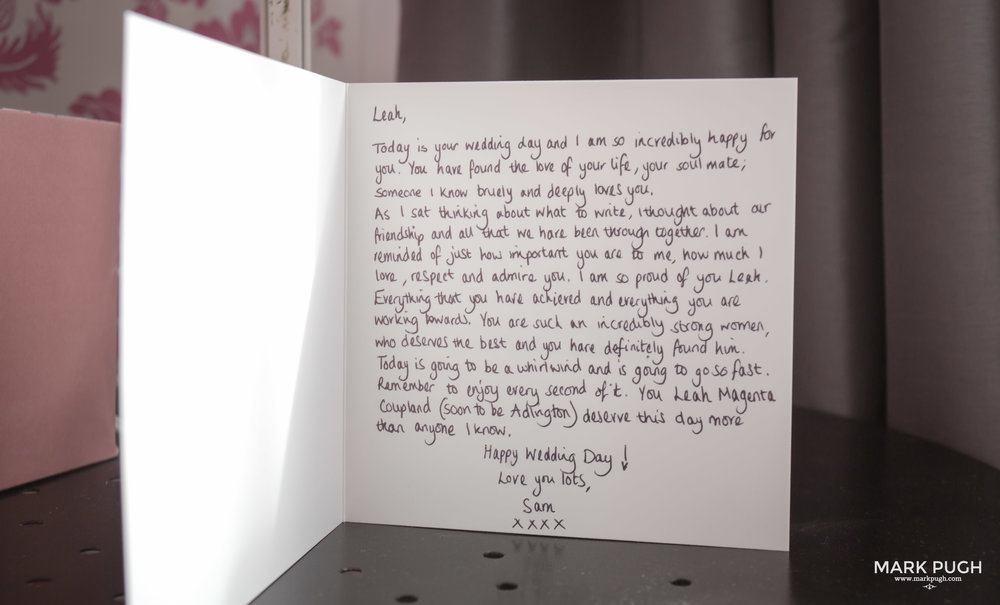 Leah,
Today is your wedding day and I am so incredibly happy for
you. You have found the love of your life, your soul mate;
someone I know truely and deeply loves you.
As I sat thinking about what to write, I thought about our
friendship and all that we have been through together. I am
reminded of just how important you are to me, how much I
love, respect and admire you. I am so proud of you Leah.
Everything that you have achieved and everything you are
working towards. You are such an incredibly strong women,
who deserves the best and you have definitely found him.
Today is going to be a whirlwind and is going to go so fast.
Remember to enjoy every second of it. You Leah Magenta
Coupland (soon to be Adlington) deserve this day more
than anyone I know.
Happy Wedding Day!
Love you lots,
Sam
xxxx
MARK PUGH
www.markpugh.com